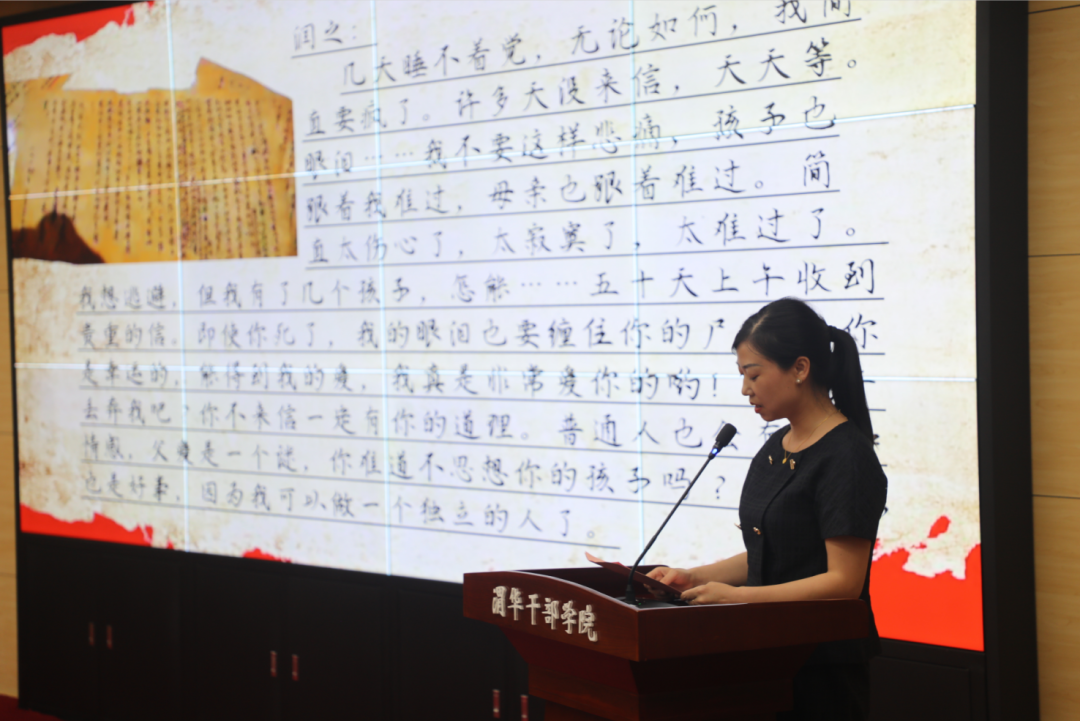 润之：
几天睡不着觉，无论如何，我简
直要疯了。许多天没来信，天天等。
眼泪……我不要这样悲痛，孩子也
跟着我难过，母亲也跟着难过。简
直太伤心了，太寂寞了，太难过了。
我想逃避，但我有了几个孩子，怎能……五十天上午收到
贵重的信。即使你死了，我的眼泪也要缠住你的尸 你
是幸运的，能得到我的爱，我真是非常爱你的哟！
去弃我吧？你不来信一定有你的道理。普通人也会
情感，父爱是一个谜，你难道不思想你的孩子吗？
也是好事，因为我可以做一个独立的人了。
渭华干部学院